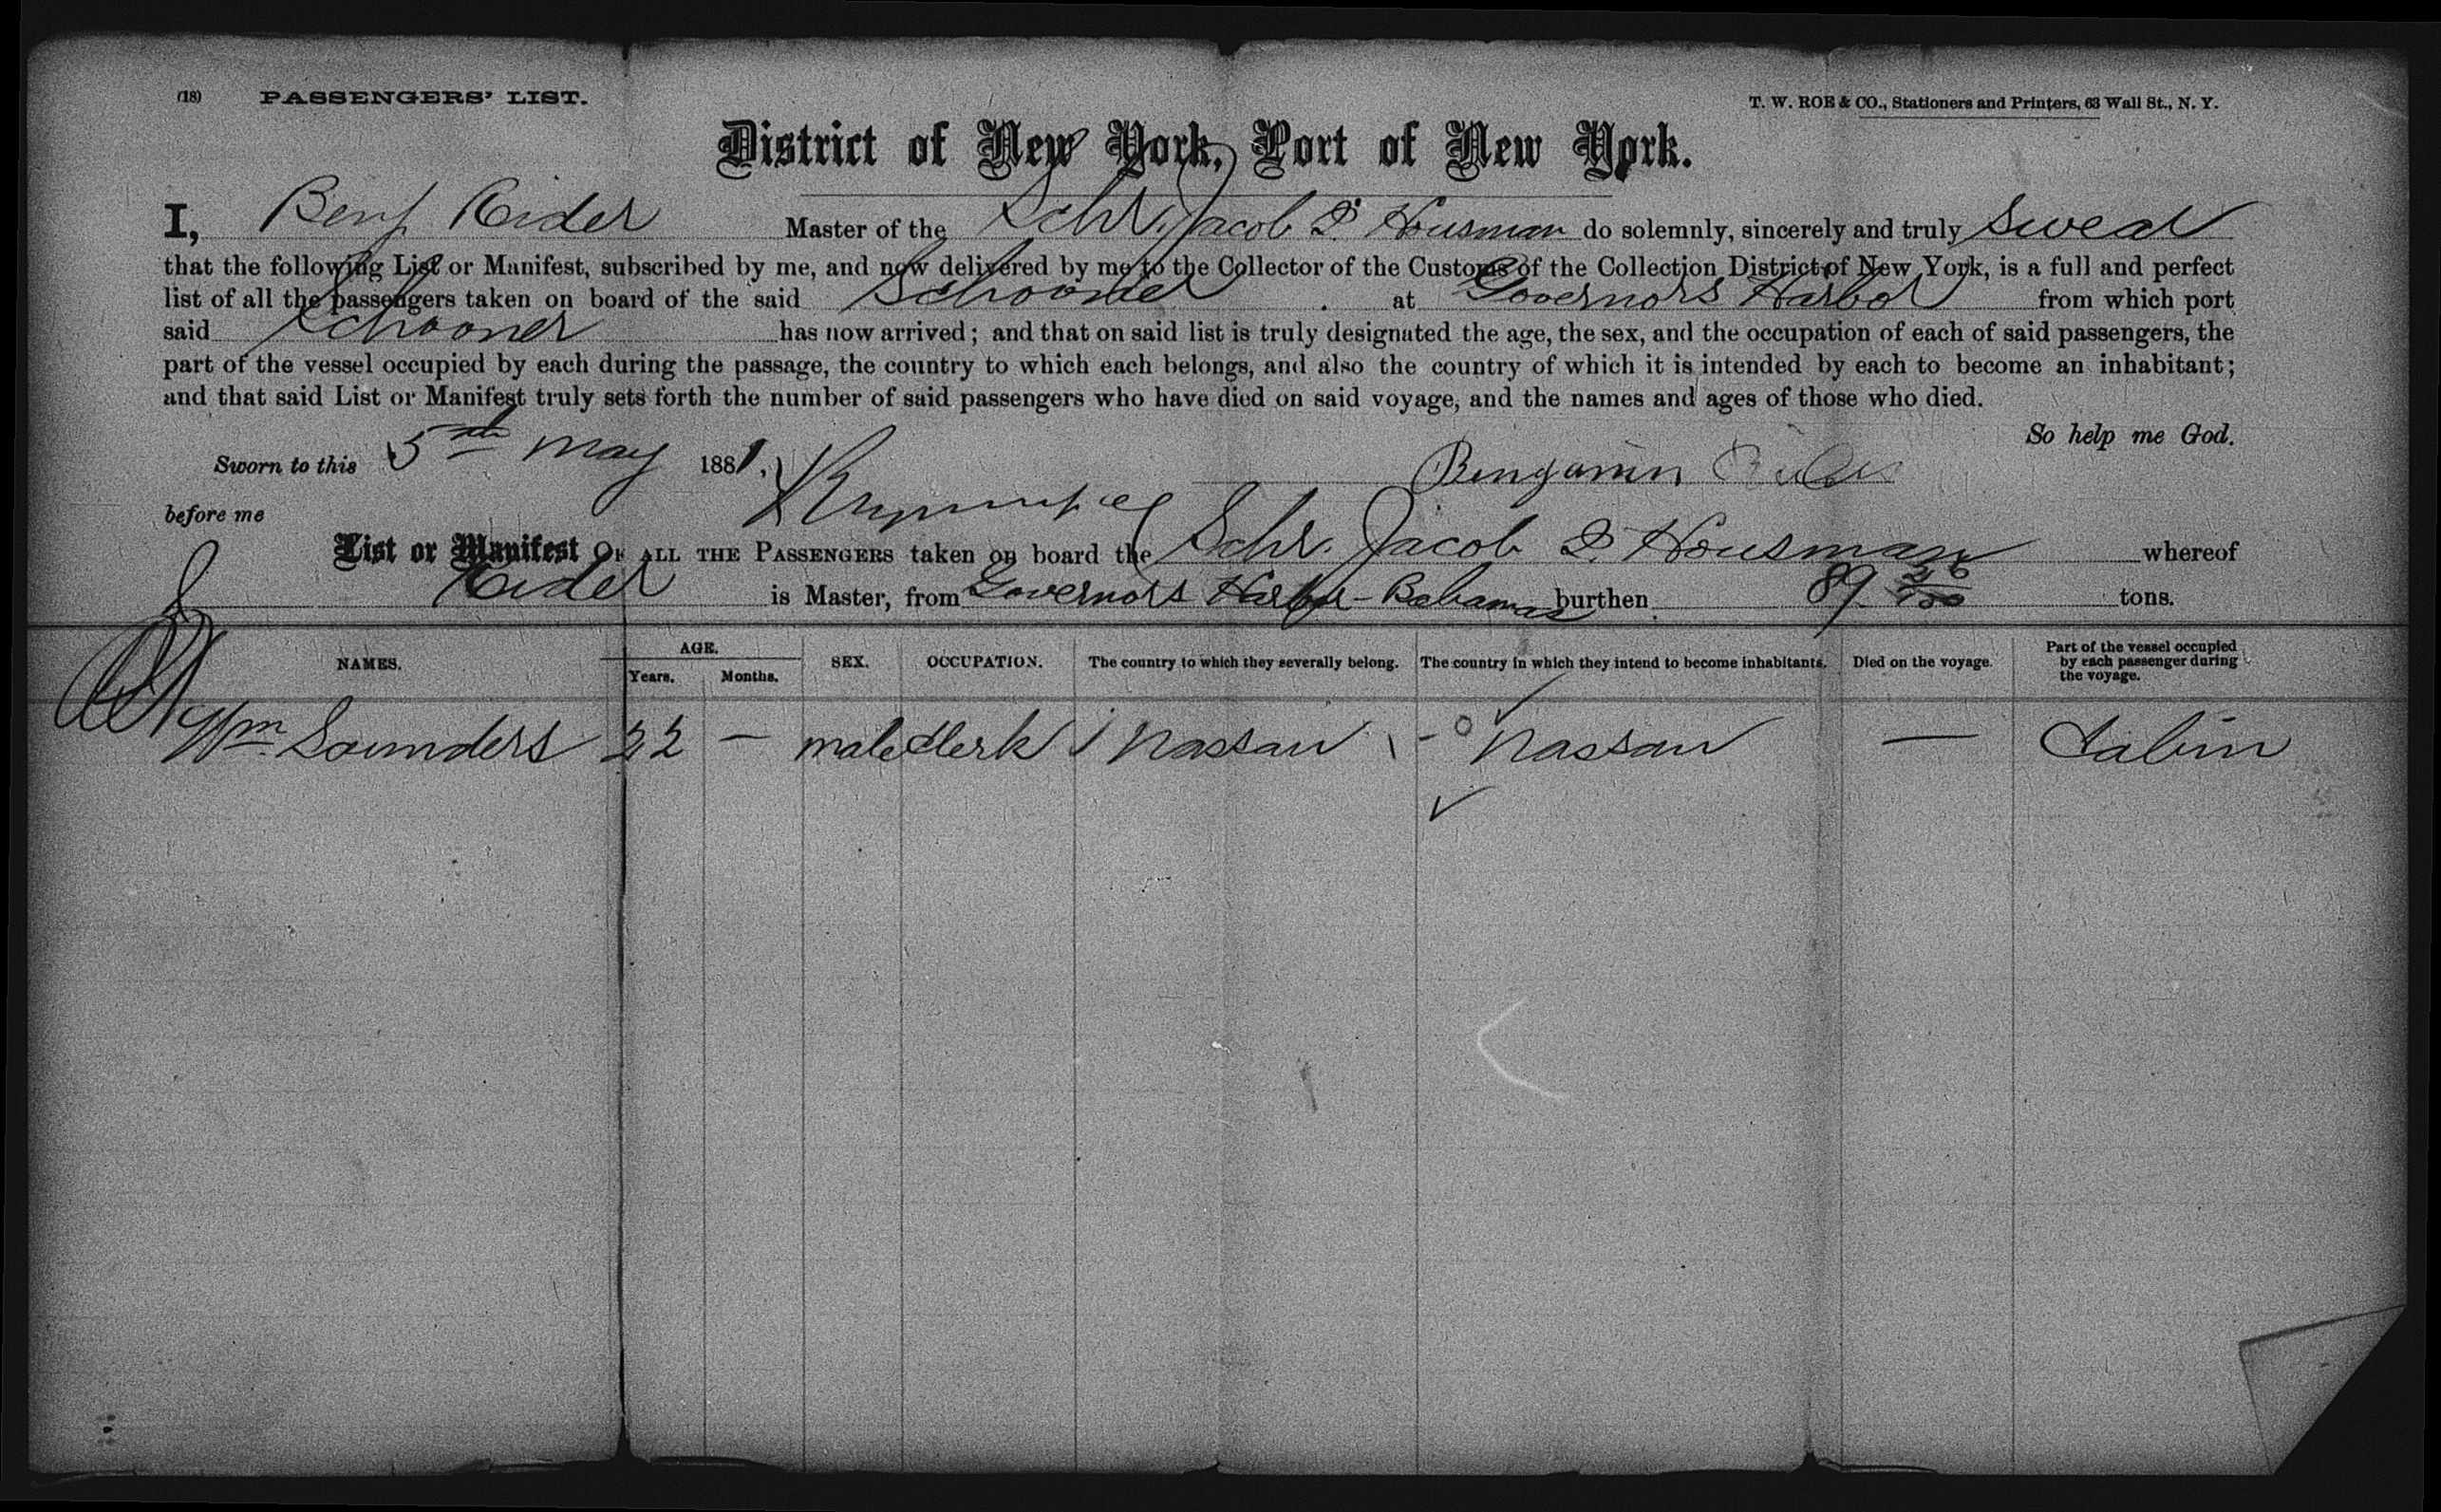 (18) PASSENGERS' LIST. T. W. ROE & CO., Stationers and Printers, 63 Wall St., N. Y.
District of New York, Port of New York.
I, Benj Rider Master of the Schr. Jacob I. Housman do solemnly, sincerely and truly swear
that the following List or Manifest, subscribed by me, and now delivered by me to the Collector of the Customs of the Collection District of New York, is a full and perfect
list of all the passengers taken on board of the said Schooner at Governors Harbor from which port
said Schooner has now arrived; and that on said list is truly designated the age, the sex, and the occupation of each of said passengers, the
part of the vessel occupied by each during the passage, the country to which each belongs, and also the country of which it is intended by each to become an inhabitant;
and that said List or Manifest truly sets forth the number of said passengers who have died on said voyage, and the names and ages of those who died.
So help me God.
Sworn to this 5th May 1881, Benjamin Rider
before me
List or Manifest OF ALL THE PASSENGERS taken on board the Schr. Jacob I Housman whereof
Rider is Master, from Governors Harbor - Bahamas burthen 89 26/100 tons.
NAMES. AGE. Years. Months. SEX. OCCUPATION. The country to which they severally belong. The country in which they intend to become inhabitants. Died on the voyage. Part of the vessel occupied by each passenger during the voyage.
Wm Saunders 22 — male Clerk Nassau Nassau — Cabin